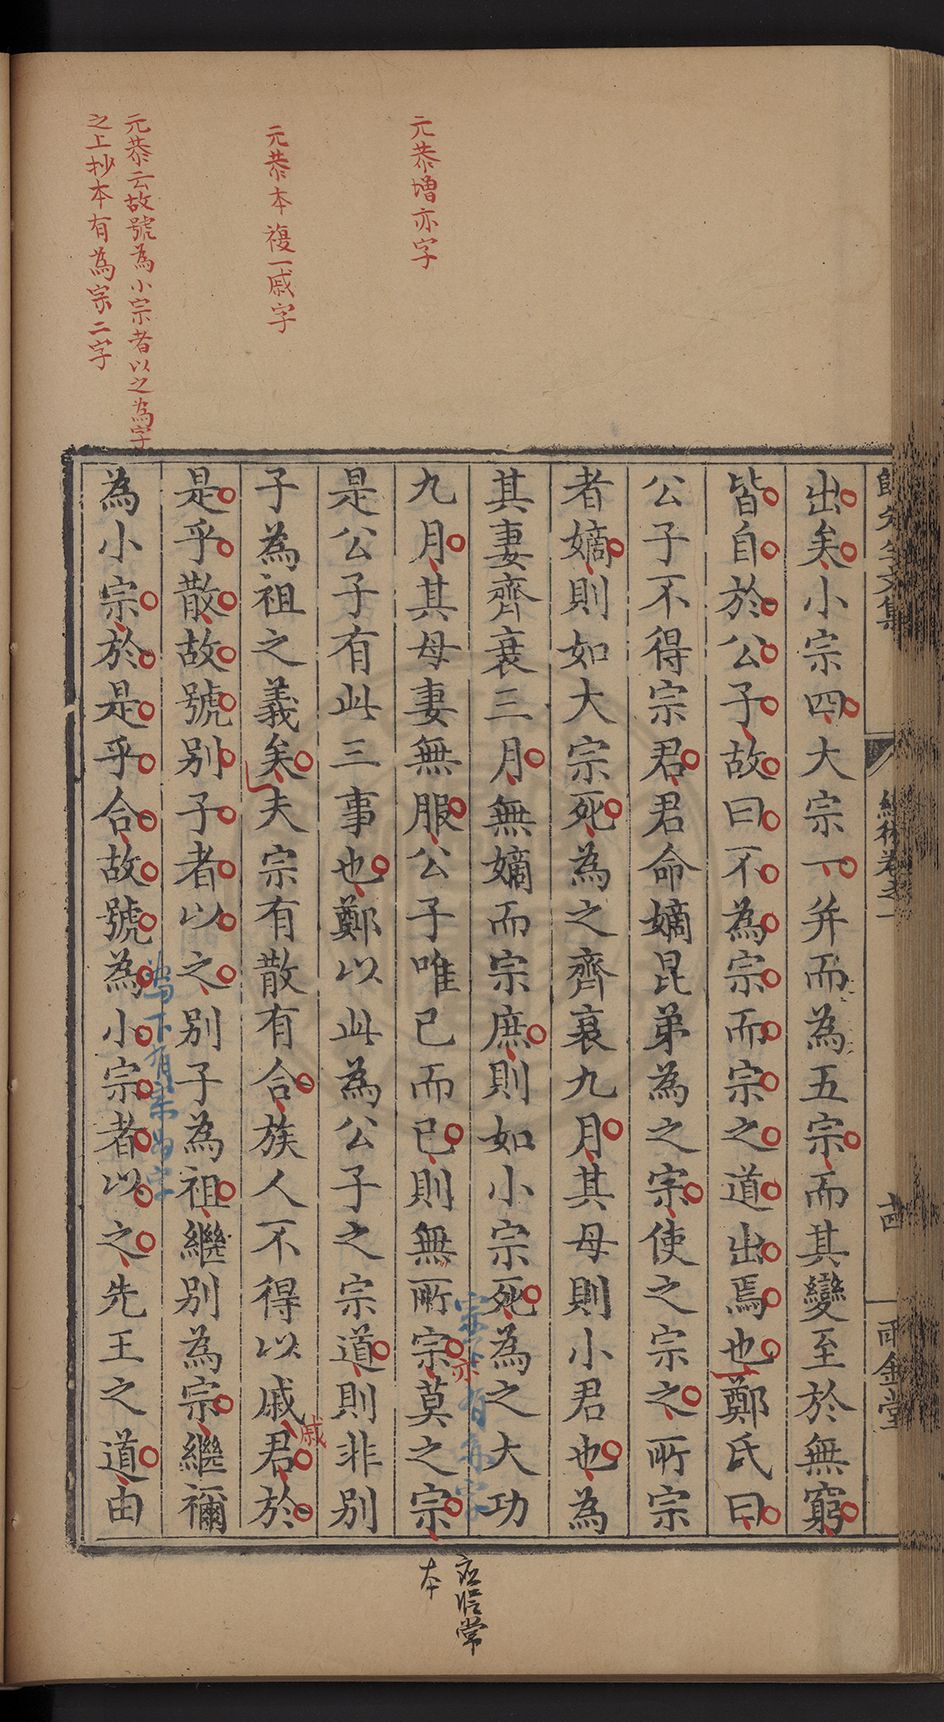 元恭增亦字
元恭本複一戚字
元恭云故號為小宗者以之為字
之上抄本有為宗二字
出矣小宗四大宗一并而為五宗而其變至於無窮
皆自於公子故曰不為宗而宗之道出焉也鄭氏曰
公子不得宗君君命嫡昆弟為之宗使之宗之所宗
者嫡則如大宗死為之齊衰九月其母則小君也為
其妻齊衰三月無嫡而宗庶則如小宗死為之大功
九月其母妻無服公子唯己而已則無所宗莫之宗
亦
是公子有此三事也鄭以此為公子之宗道則非別
子為祖之義矣夫宗有散有合族人不得以戚君於
戚
是乎散故號別子者以之別子為祖繼別為宗繼禰
為小宗於是乎合故號為小宗者以之先王之道由
宗下有亦字
為下有宗為字
卷之一
十四
雨金堂
本